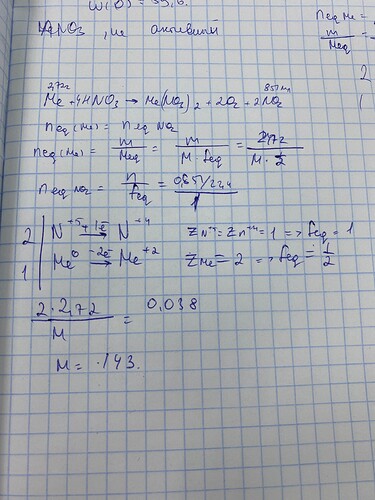 W(O) = 55,6.
HNO3, не активный
n eq Me =
m
Meq
2
2,72г 857 мл
Me + 4HNO3 → Me(NO3)2 + 2O2 + 2NO2
n eq (Me) = n eq NO2
n eq (Me) = m/Meq = m/M · feq = 2,72/M · 1/2
n eq NO2 = n/feq = 0,857/22,4/1
2 | N+5 +1e→ N+4 ZN+5 = ZN+4 = 1 => feq = 1
1 | Me0 -2e→ Me+2 ZMe = 2 => feq = 1/2
2 · 2,72/M = 0,038
M = 143.